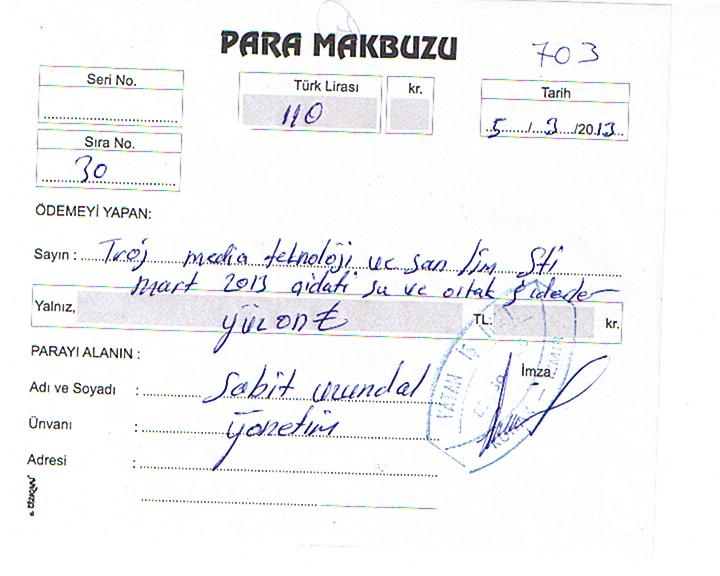 PARA MAKBUZU
703
Seri No.
Türk Lirası
kr.
Tarih
110
5/3/2013
Sıra No.
30
ÖDEMEYİ YAPAN:
Sayın : Troj media teknoloji ve san lim şti
mart 2013 aidatı su ve ortak giderler
Yalnız, yüzon₺ TL: kr.
PARAYI ALANIN :
İmza
Adı ve Soyadı : Sabit
Ünvanı : Yönetim
Adresi :